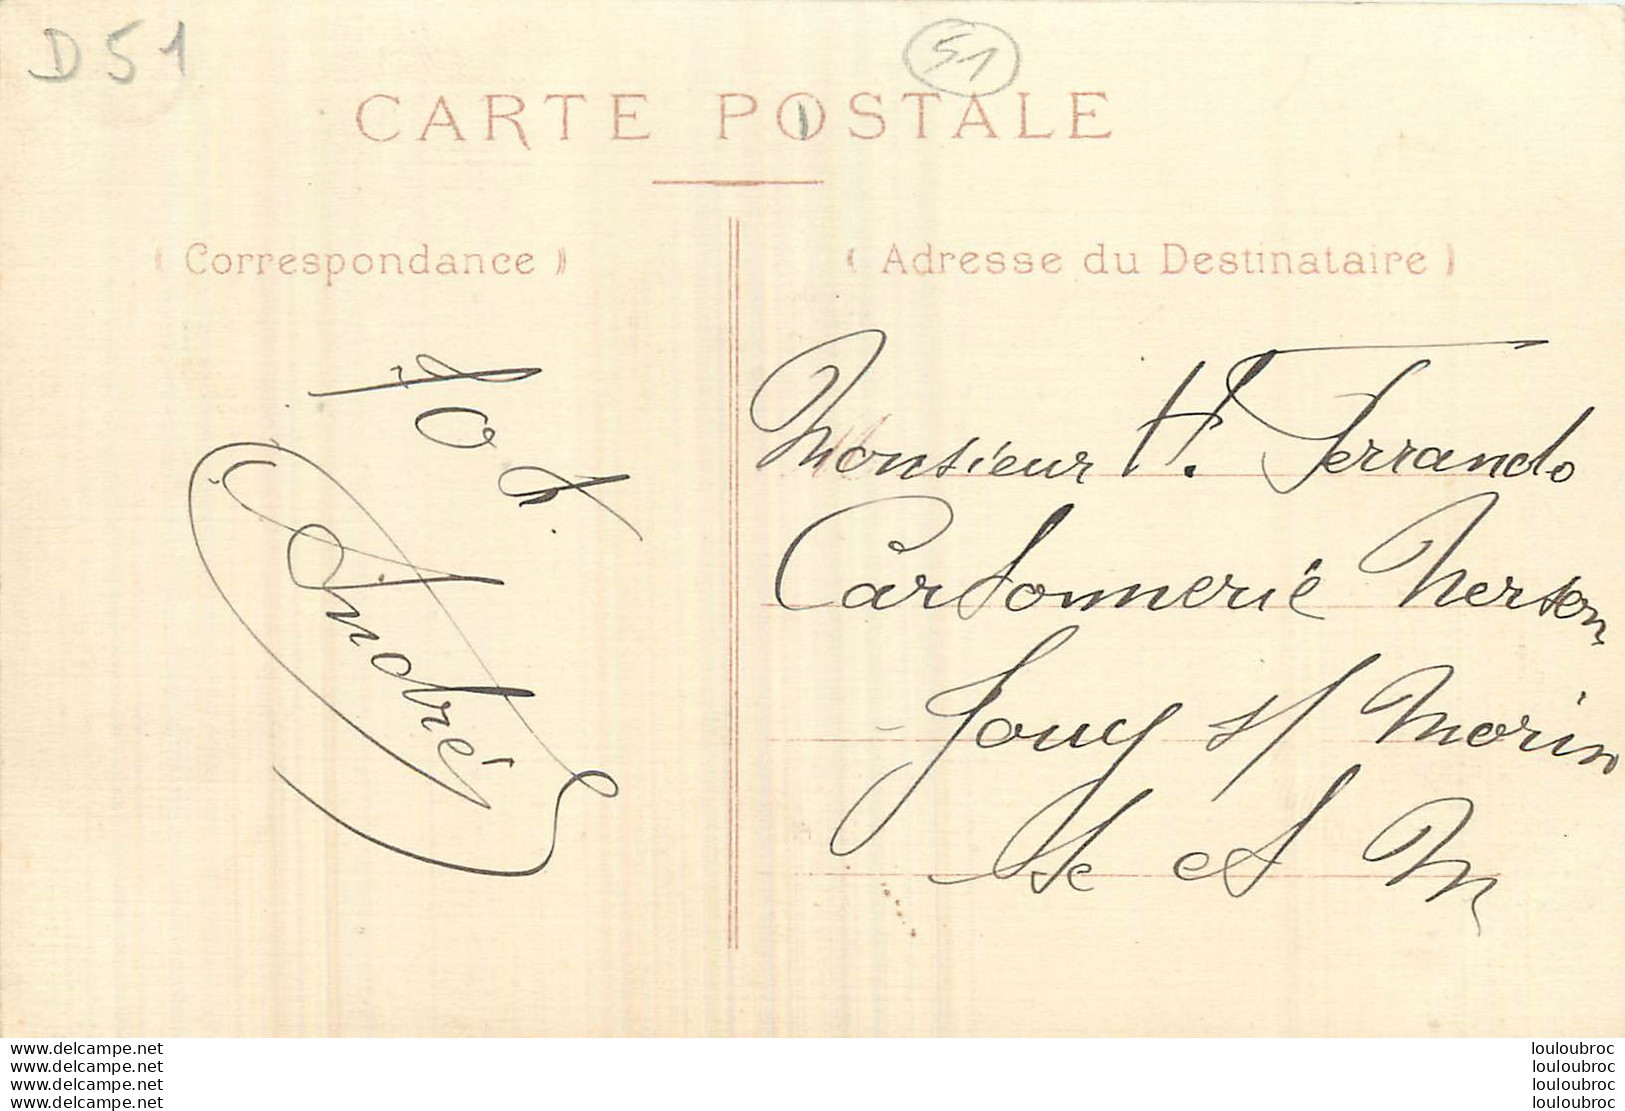 D 51
51
CARTE POSTALE
(Correspondance)
(Adresse du Destinataire)
André
Monsieur H. Ferrando
Cartonnerie Nerson
Jouy s/ Morin
Se et M
www.delcampe.net
www.delcampe.net
www.delcampe.net
www.delcampe.net
louloubroc
louloubroc
louloubroc
louloubroc